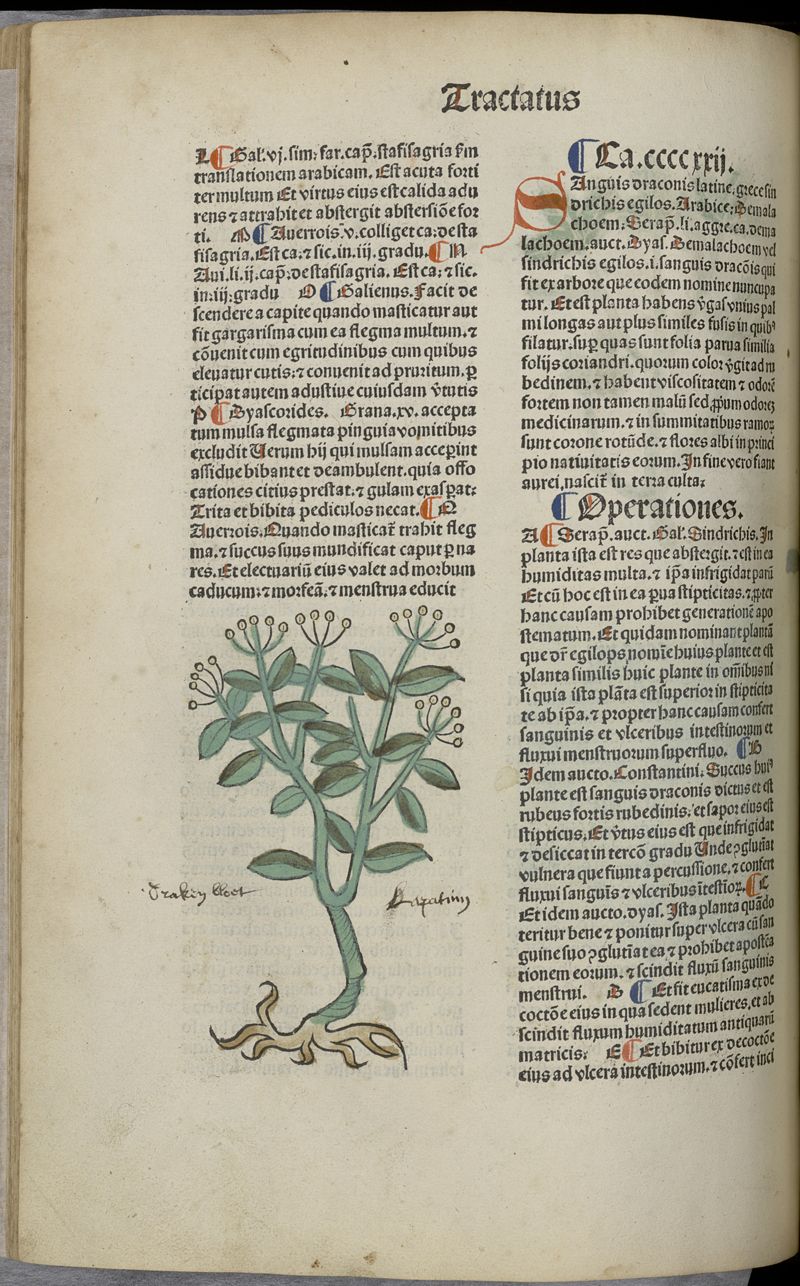 Tractatus
L ¶ Gal'. vj. sim: far. cap̄. stafisagria s̄m
translationem arabicam. Est acuta forti
ter multum Et virtus eius est calida adu
rens ⁊ attrahit et abstergit abstersiōe for
ti. M ¶ Auerrois. v. colliget ca: de sta
fisagria. Est ca: ⁊ sic. in. iij. gradu. ¶ N
Aui. li. ij. cap̄: de stafisagria. Est ca: ⁊ sic.
in: iij: gradu O ¶ Galienus. Facit de
scendere a capite quando masticatur aut
fit gargarisma cum ea flegma multum. ⁊
cōuenit cum egritudinibus cum quibus
eleuatur cutis: ⁊ conuenit ad pruritum. ꝑ
ticipat autem adustiue cuiusdam v̄tutis
P ¶ Dyascorides. Grana. xv. accepta
tum mulsa flegmata pinguia vomitibus
excludit Uerum hij qui mulsam acceꝑint
assidue bibant et deambulent. quia offo
cationes citius prestat. ⁊ gulam exasꝑat:
Trita et bibita pediculos necat. ¶ Q
Auerrois. Quando masticat̄ trahit fleg
ma. ⁊ succus suus mundificat caput ꝑ na
res. Et electuariū eius valet ad morbum
caducum: ⁊ morfeā. ⁊ menstrua educit
Draken bloet
¶ Ca. ccccxxij.
SAnguis draconis latine. grece sin
drichis egilos. Arabice: Demala
choem: Serap̄. li. aggre. ca. dema
lachoem. auct. Dyas. Demalachoem vel
sindrichis egilos. i. sanguis dracōis qui
fit ex arbore que eodem nomine nuncupa
tur. Et est planta habens v̄gas vnius pal
mi longas aut plus similes fusis in quib⁹
filatur. suꝑ quas sunt folia parua similia
folijs coriandri. quorum color v̄git ad ru
bedinem. ⁊ habent viscositatem ⁊ odorē
fortem non tamen malū sed ꝓprium odorez
medicinarum. ⁊ in summitatibus ramoꝝ
sunt corone rotūde. ⁊ flores albi in princi
pio natiuitatis eorum. In fine vero fiunt
aurei, nascit̄ in terra culta:
¶ Operationes.
A ¶ Serap̄. auct. Gal'. Sindrichis. In
planta ista est res que abstergit. ⁊ est in ea
humiditas multa. ⁊ ip̄a infrigidat parū
Et cū hoc est in ea ꝑua stipticitas. ⁊ ꝓpter
hanc causam prohibet generationē apo
stematum. Et quidam nominant plantā
que dr̄ egilops, nomīe huius plante et est
planta similis huic plante in om̄ibus ni
si quia ista plāta est superior in stipticita
te ab ip̄a. ⁊ propter hanc causam confert
sanguinis et vlceribus intestinorum et
fluxui menstruorum superfluo. ¶ B
Idem aucto. Constantini: Succus hui⁹
plante est sanguis draconis dictus et est
rubeus fortis rubedinis. et sapor eius est
stipticus. Et v̄tus eius est que infrigidat
⁊ desiccat in tercō gradu Unde ꝯglutīat
vulnera que fiunt a percussione. ⁊ confert
fluxui sanguīs ⁊ vlceribus ītestīoꝝ. ¶ C
Et idem aucto. dyas. Ista planta quādo
teritur bene ⁊ ponitur super vlcera cū san
guine suo ꝯglutīat ea ⁊ prohibet apostēa
tionem eorum. ⁊ scindit fluxū sanguinis
menstrui. D ¶ Et fit eucatisma ex de
coctōe eius in qua sedent mulieres. et ab
scindit fluxum humiditatum antiquarū
matricis: E ¶ Et bibitur ex decoctōe
eius ad vlcera intestinorum. ⁊ cōfert inci